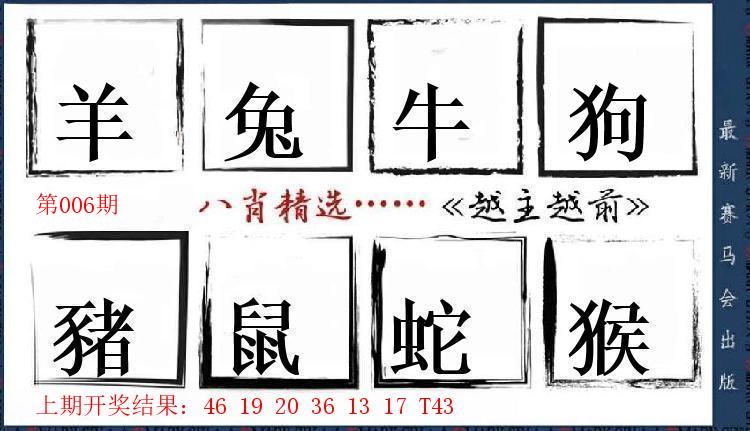 羊 兔 牛 狗
第006期 八肖精选……《越主越前》
豬 鼠 蛇 猴
上期开奖结果：46 19 20 36 13 17 T43
最新赛马会出版